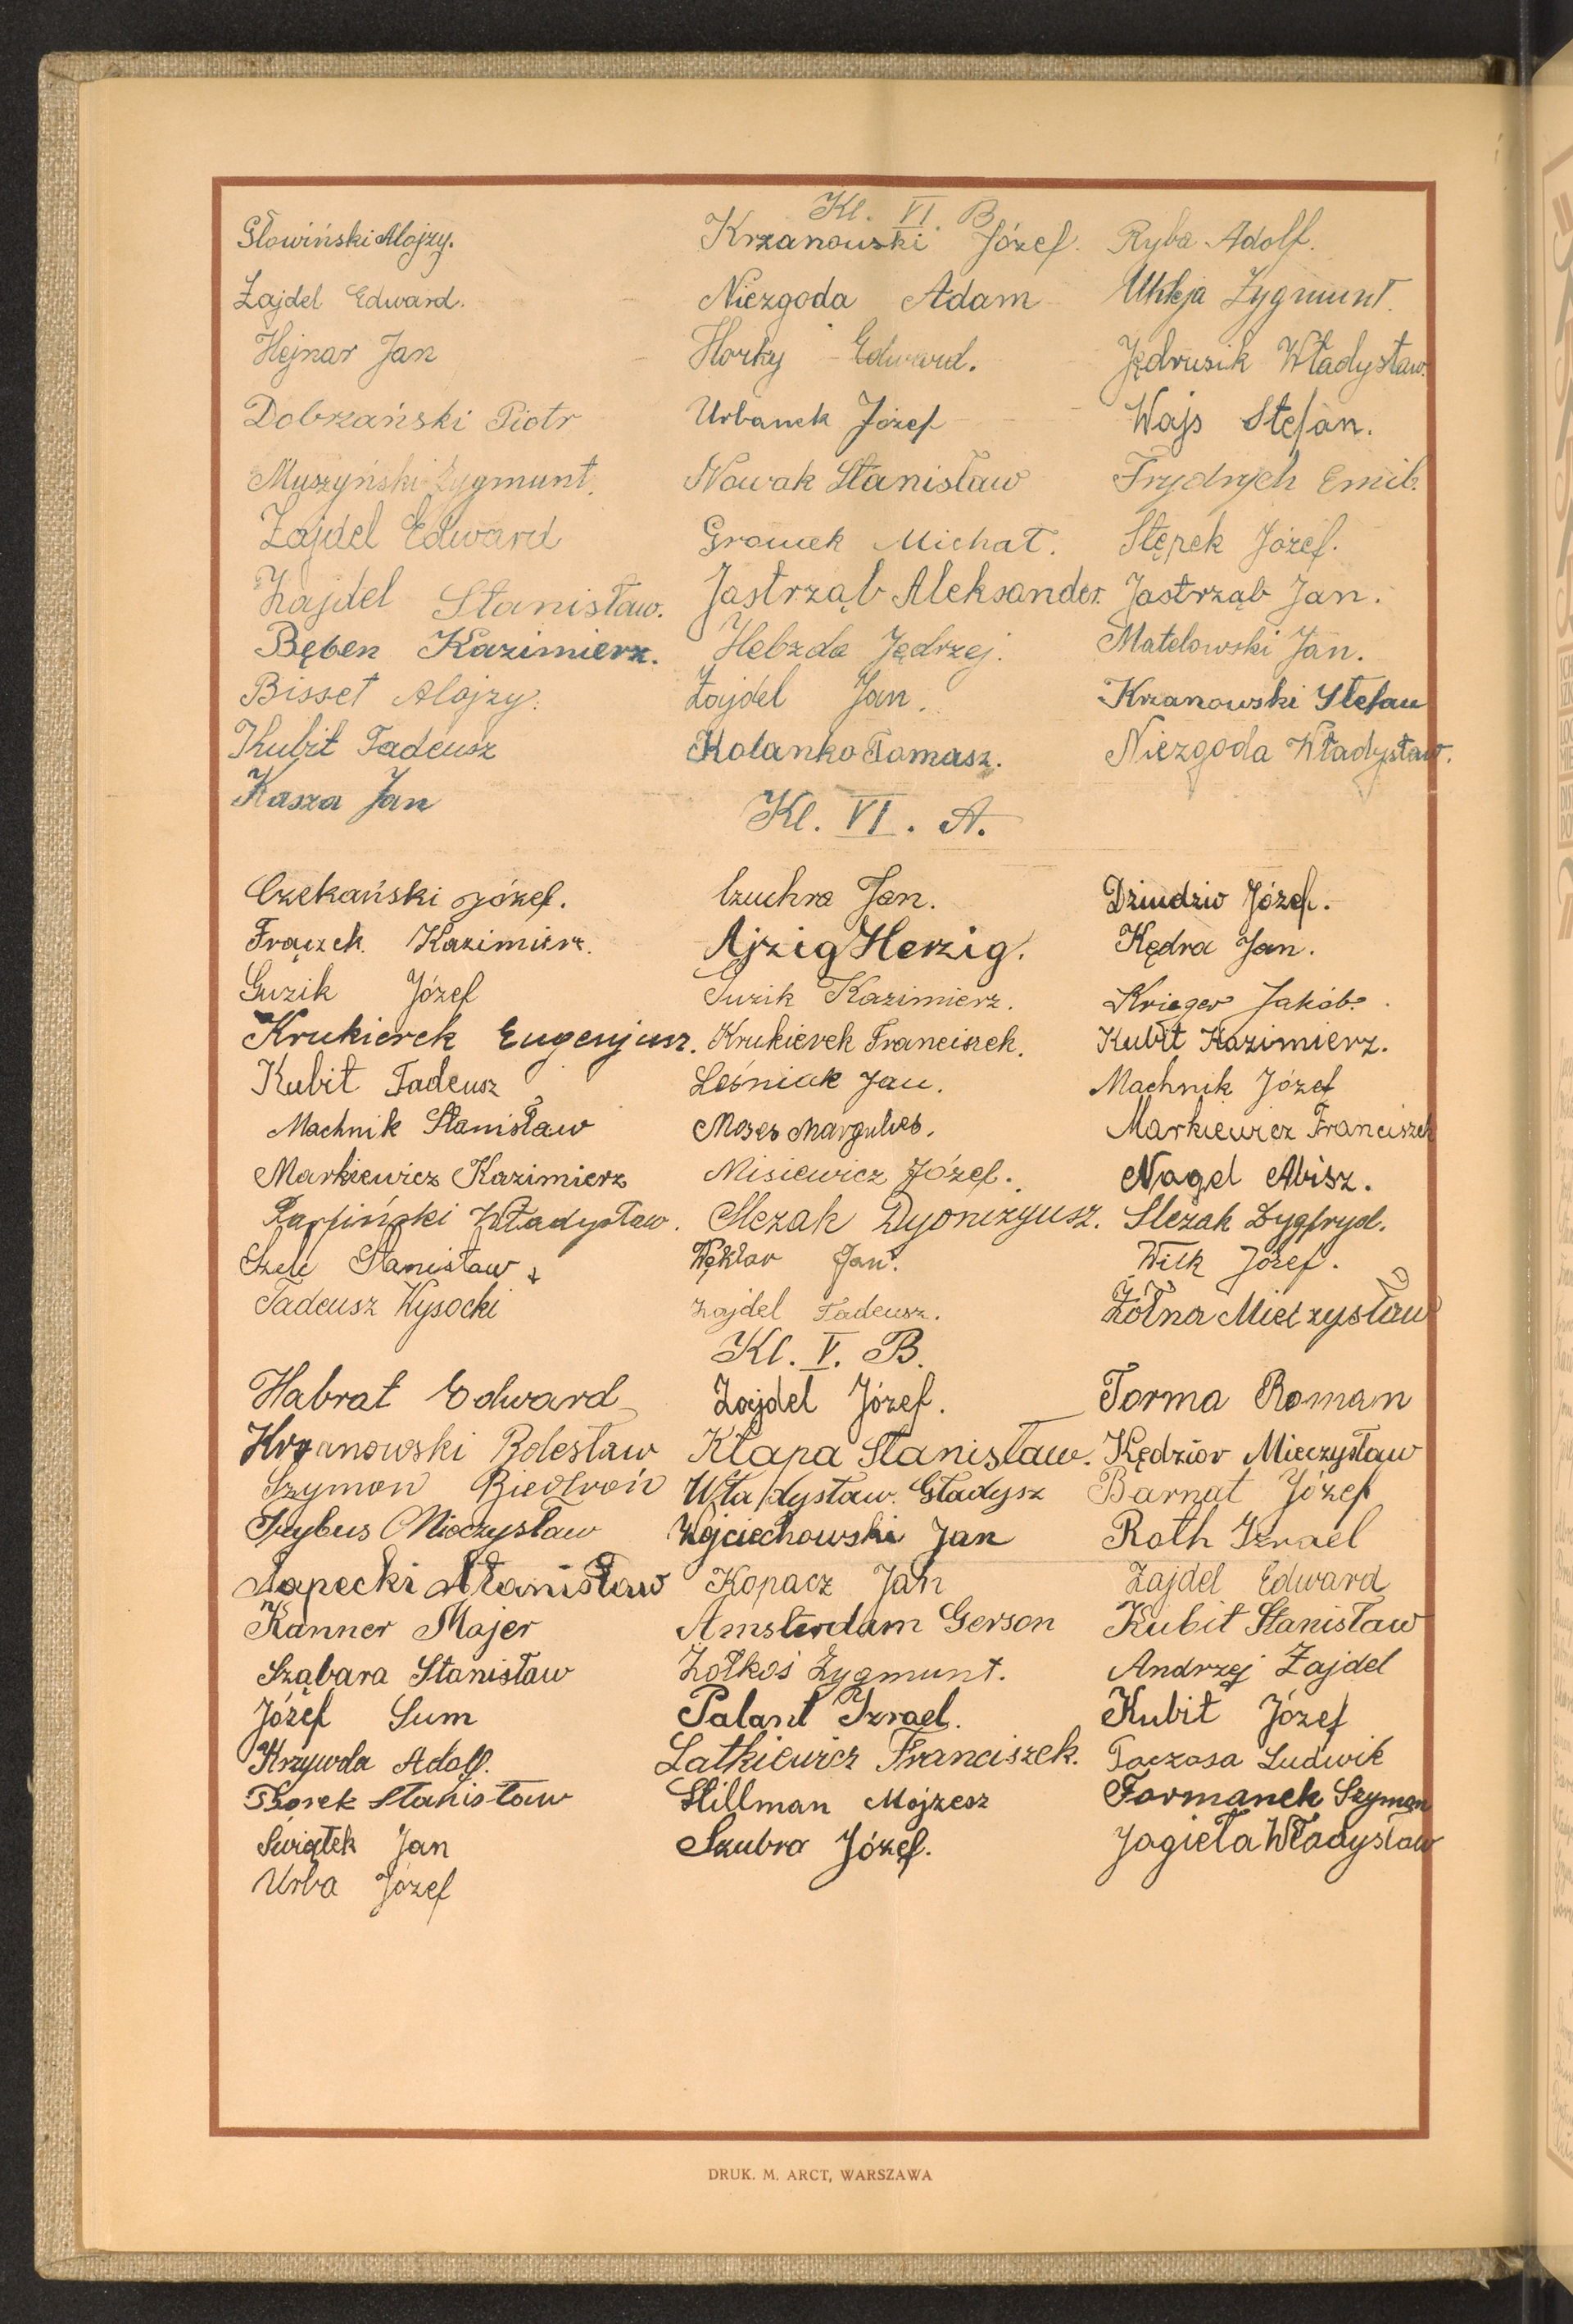 Kl. VI. B
Słowiński Alojzy. Krzanowski Józef. Ryba Adolf.
Zajdel Edward. Niezgoda Adam Ukleja Zygmunt.
Hejnar Jan Horky Edward. Jędrusik Władysław.
Dobrzański Piotr Urbanek Józef Wajs Stefan.
Muszyński Zygmunt. Nowak Stanisław Frydrych Emil.
Zajdel Edward Gromek Michał. Stępek Józef.
Zajdel Stanisław. Jastrząb Aleksander. Jastrząb Jan.
Bęben Kazimierz. Hebzda Jędrzej. Matelowski Jan.
Bisset Alojzy. Zajdel Jan. Krzanowski Stefan
Kubit Tadeusz Kolanko Tomasz. Niezgoda Władysław.
Kasza Jan
Kl. VI. A.
Czekański Józef. Czuchra Jan. Dziudzio Józef.
Frączek Kazimierz. Ajzig Herzig. Kędra Jan.
Guzik Józef Guzik Kazimierz. Krieger Jakób.
Krukierek Eugenjusz. Krukierek Franciszek. Kubit Kazimierz.
Kubit Tadeusz Leśniak Jan. Machnik Józef
Machnik Stanisław Moses Margulies. Markiewicz Franciszek
Markiewicz Kazimierz Misiewicz Józef. Nagel Abisz.
Władysław. Slezak Dyonizyusz. Slezak Zygfryd.
Szele Stanisław Węklar Jan. Wilk Józef.
Tadeusz Wysocki Zajdel Tadeusz. Żółna Mieczysław
Kl. V. B.
Habrat Edward Zajdel Józef. Torma Roman
Krzanowski Bolesław Kłapa Stanisław. Kędzior Mieczysław
Szymon Biedroń Władysław Gładysz Barnat Józef
Trybus Mieczysław Wojciechowski Jan Roth Izrael
Łapecki Stanisław Kopacz Jan Zajdel Edward
Kanner Majer Amsterdam Gerson Kubit Stanisław
Sząbara Stanisław Żołkoś Zygmunt. Andrzej Zajdel
Józef Sum Palant Izrael. Kubit Józef
Krzywda Adolf. Latkiewicz Franciszek. Ludwik
Borek Stanisław Stillman Mojżesz Formanek Szymon
Świątek Jan Szubra Józef. Jagieła Władysław
Urba Józef
DRUK. M. ARCT, WARSZAWA